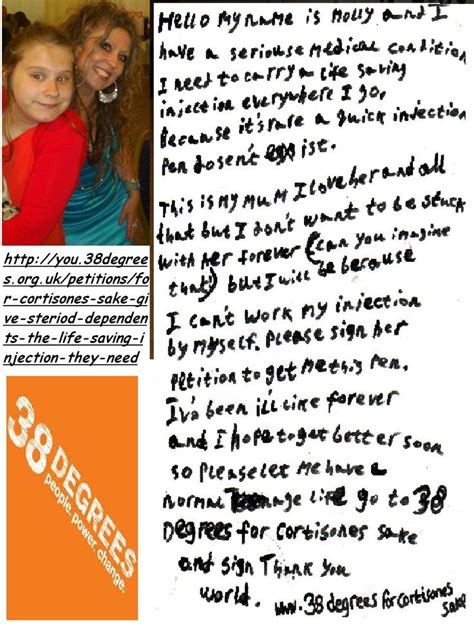 Hello My name is Molly and I
have a seriouse Medical condition
I need to carry a life saving
injection everywhere I go,
Because it's rare a quick injection
Pen dosen't exist.
This is My Mum I love her and all
that but I don't want to be stuck
with her forever (can you imagine
that) but I will be because
I can't work my injection
by myself. Please sign her
Petition to get Me this Pen.
I've been ill like forever
and I hope to get better soon
so Please let me have a
normal Teenage life go to 38
Degrees for cortisones sake
and sign Thank you
world. www.38degreesforcortisones
sake
http://you.38degree
s.org.uk/petitions/fo
r-cortisones-sake-gi
ve-steriod-dependen
ts-the-life-saving-i
njection-they-need
38 DEGREES
people. power. change.